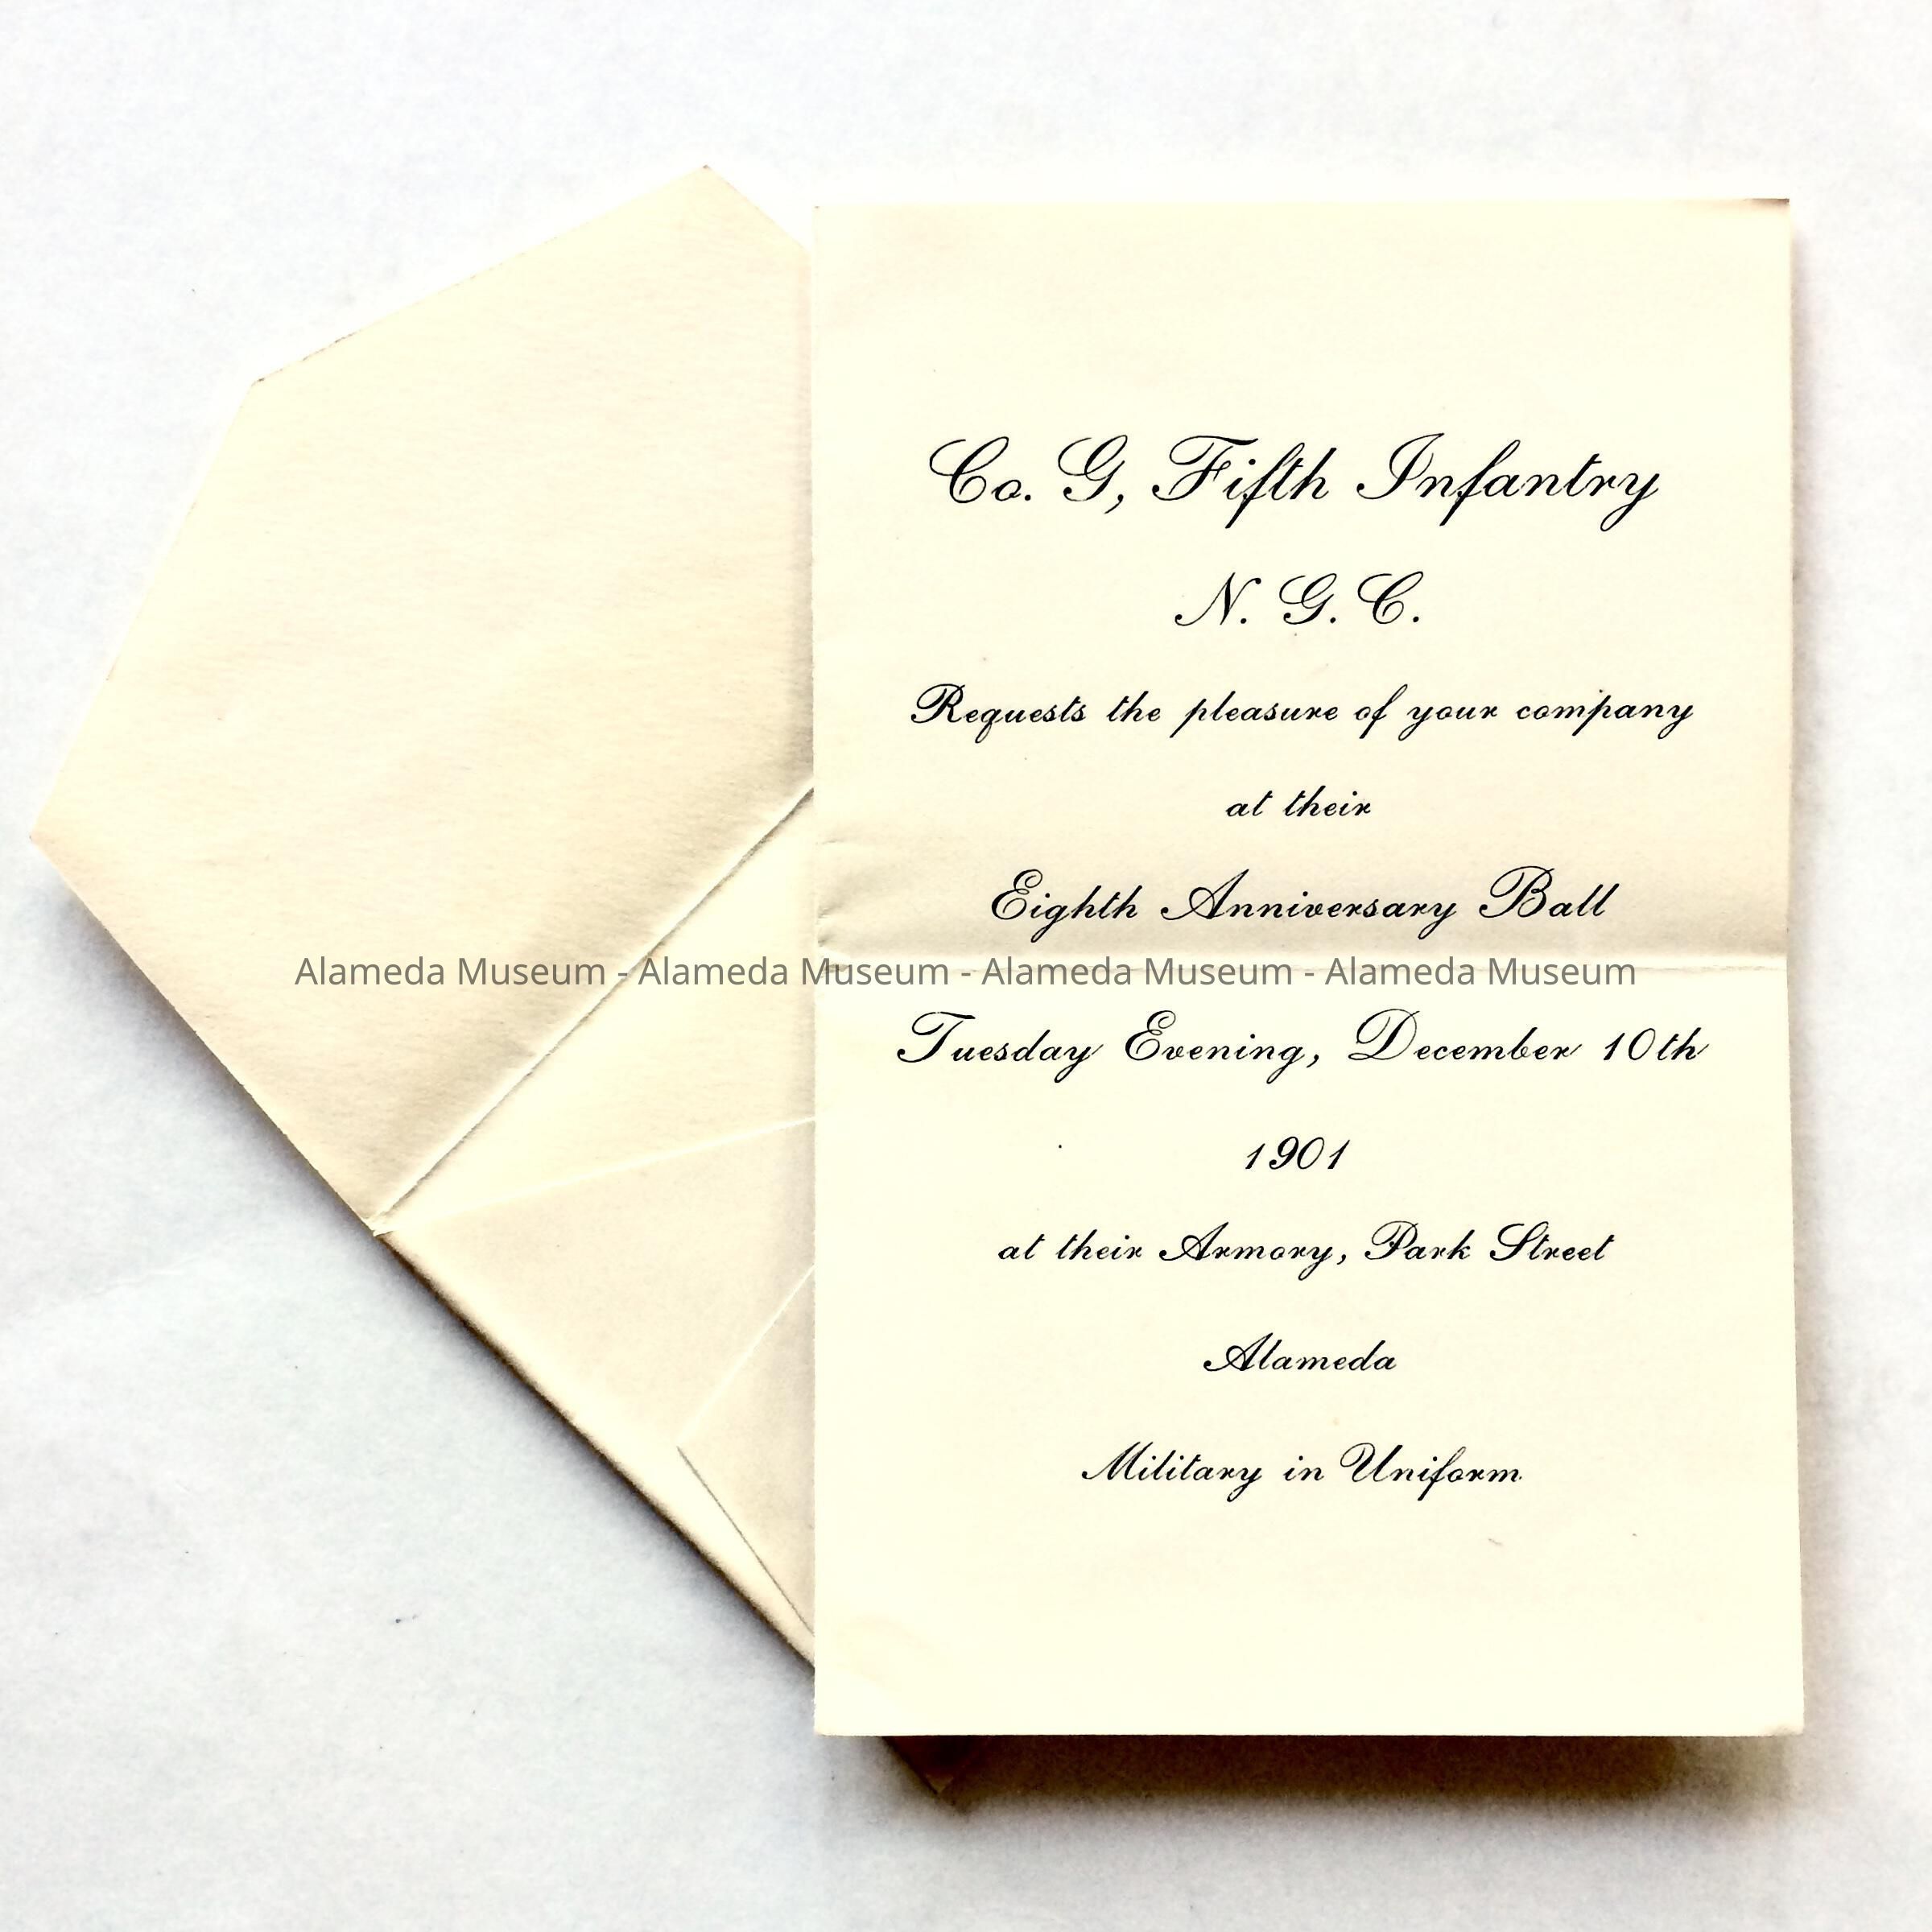 Co. G, Fifth Infantry
N. G. C.
Requests the pleasure of your company
at their
Eighth Anniversary Ball
Alameda Museum - Alameda Museum - Alameda Museum - Alameda Museum
Tuesday Evening, December 10th
1901
at their Armory, Park Street
Alameda
Military in Uniform